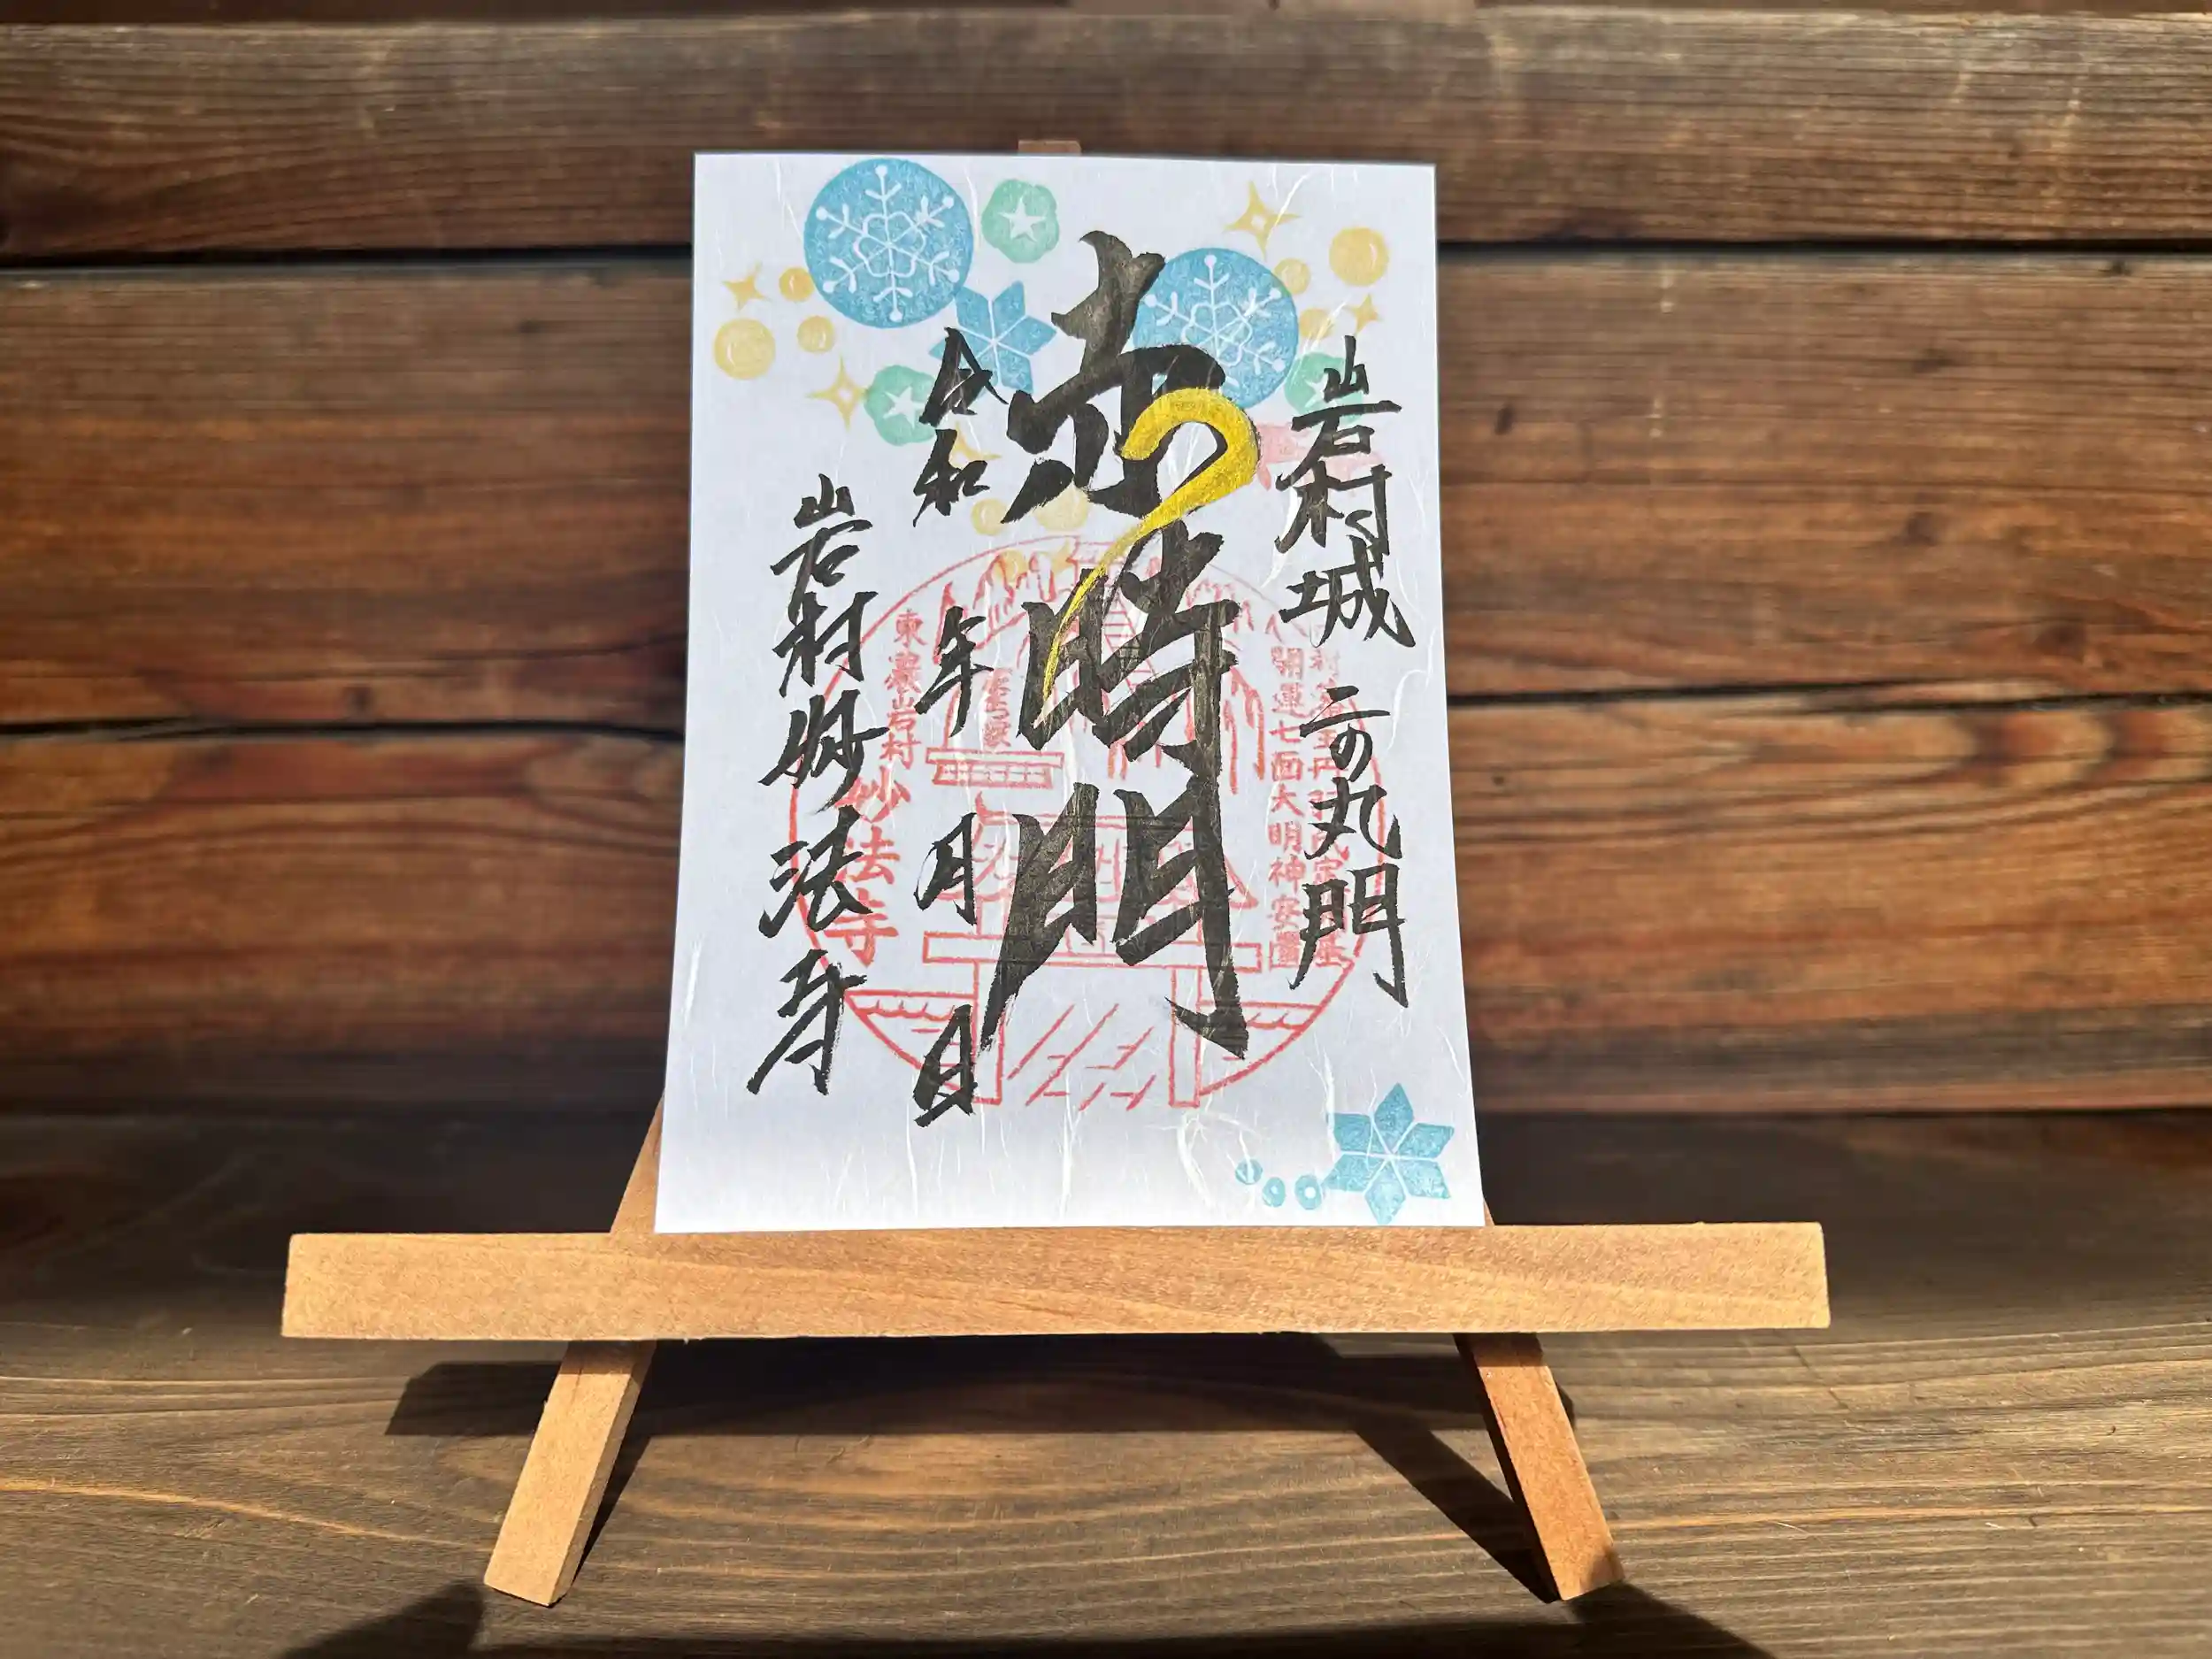 岩村城 二の丸門
赤時門
令和 年 月 日
岩村妙法寺
開運七面大明神安置
岩村
妙法寺